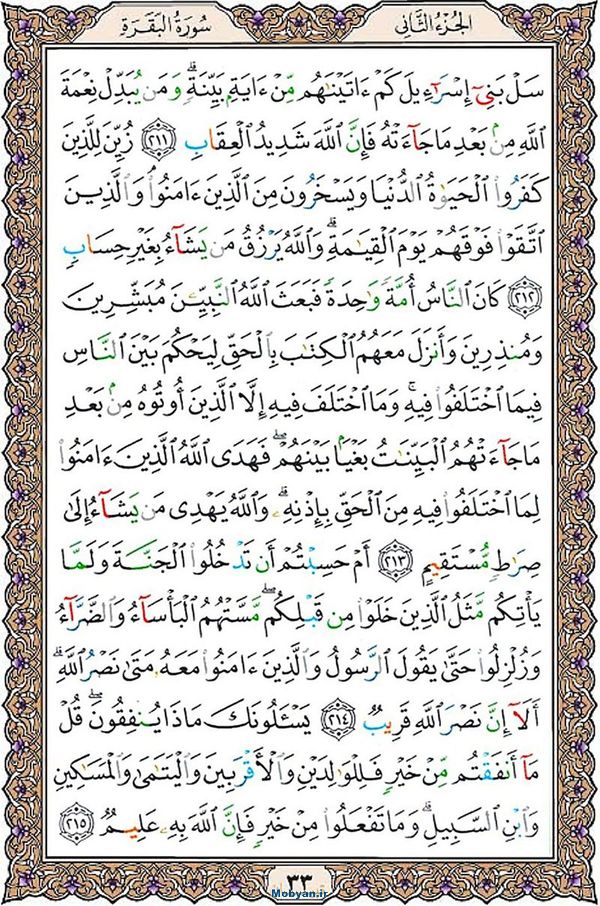 الجُزءُ الثّانی
سورَةُ البَقَرَة
سَلْ بَنِیٓ إِسْرَٰٓءِیلَ كَمْ ءَاتَیْنَٰهُم مِّنْ ءَایَةِۭ بَیِّنَةٍۗ وَمَن یُبَدِّلْ نِعْمَةَ
ٱللَّهِ مِنۢ بَعْدِ مَا جَآءَتْهُ فَإِنَّ ٱللَّهَ شَدِیدُ ٱلْعِقَابِ ﴿٢١١﴾ زُیِّنَ لِلَّذِینَ
كَفَرُوا۟ ٱلْحَیَوٰةُ ٱلدُّنْیَا وَیَسْخَرُونَ مِنَ ٱلَّذِینَ ءَامَنُوا۟ۘ وَٱلَّذِینَ
ٱتَّقَوْا۟ فَوْقَهُمْ یَوْمَ ٱلْقِیَٰمَةِۗ وَٱللَّهُ یَرْزُقُ مَن یَشَآءُ بِغَیْرِ حِسَابٍ
﴿٢١٢﴾ كَانَ ٱلنَّاسُ أُمَّةً وَٰحِدَةً فَبَعَثَ ٱللَّهُ ٱلنَّبِیِّـۧنَ مُبَشِّرِینَ
وَمُنذِرِینَ وَأَنزَلَ مَعَهُمُ ٱلْكِتَٰبَ بِٱلْحَقِّ لِیَحْكُمَ بَیْنَ ٱلنَّاسِ
فِیمَا ٱخْتَلَفُوا۟ فِیهِۚ وَمَا ٱخْتَلَفَ فِیهِ إِلَّا ٱلَّذِینَ أُوتُوهُ مِنۢ بَعْدِ
مَا جَآءَتْهُمُ ٱلْبَیِّنَٰتُ بَغْیَۢا بَیْنَهُمْۖ فَهَدَی ٱللَّهُ ٱلَّذِینَ ءَامَنُوا۟
لِمَا ٱخْتَلَفُوا۟ فِیهِ مِنَ ٱلْحَقِّ بِإِذْنِهِۦۗ وَٱللَّهُ یَهْدِی مَن یَشَآءُ إِلَیٰ
صِرَٰطٍ مُّسْتَقِیمٍ ﴿٢١٣﴾ أَمْ حَسِبْتُمْ أَن تَدْخُلُوا۟ ٱلْجَنَّةَ وَلَمَّا
یَأْتِكُم مَّثَلُ ٱلَّذِینَ خَلَوْا۟ مِن قَبْلِكُمۖ مَّسَّتْهُمُ ٱلْبَأْسَآءُ وَٱلضَّرَّآءُ
وَزُلْزِلُوا۟ حَتَّیٰ یَقُولَ ٱلرَّسُولُ وَٱلَّذِینَ ءَامَنُوا۟ مَعَهُۥ مَتَیٰ نَصْرُ ٱللَّهِۗ
أَلَآ إِنَّ نَصْرَ ٱللَّهِ قَرِیبٌ ﴿٢١٤﴾ یَسْـَٔلُونَكَ مَاذَا یُنفِقُونَۖ قُلْ
مَآ أَنفَقْتُم مِّنْ خَیْرٍ فَلِلْوَٰلِدَیْنِ وَٱلْأَقْرَبِینَ وَٱلْیَتَٰمَیٰ وَٱلْمَسَٰكِینِ
وَٱبْنِ ٱلسَّبِیلِۗ وَمَا تَفْعَلُوا۟ مِنْ خَیْرٍ فَإِنَّ ٱللَّهَ بِهِۦ عَلِیمٌ ﴿٢١٥﴾
٣٣
Mobyan.ir